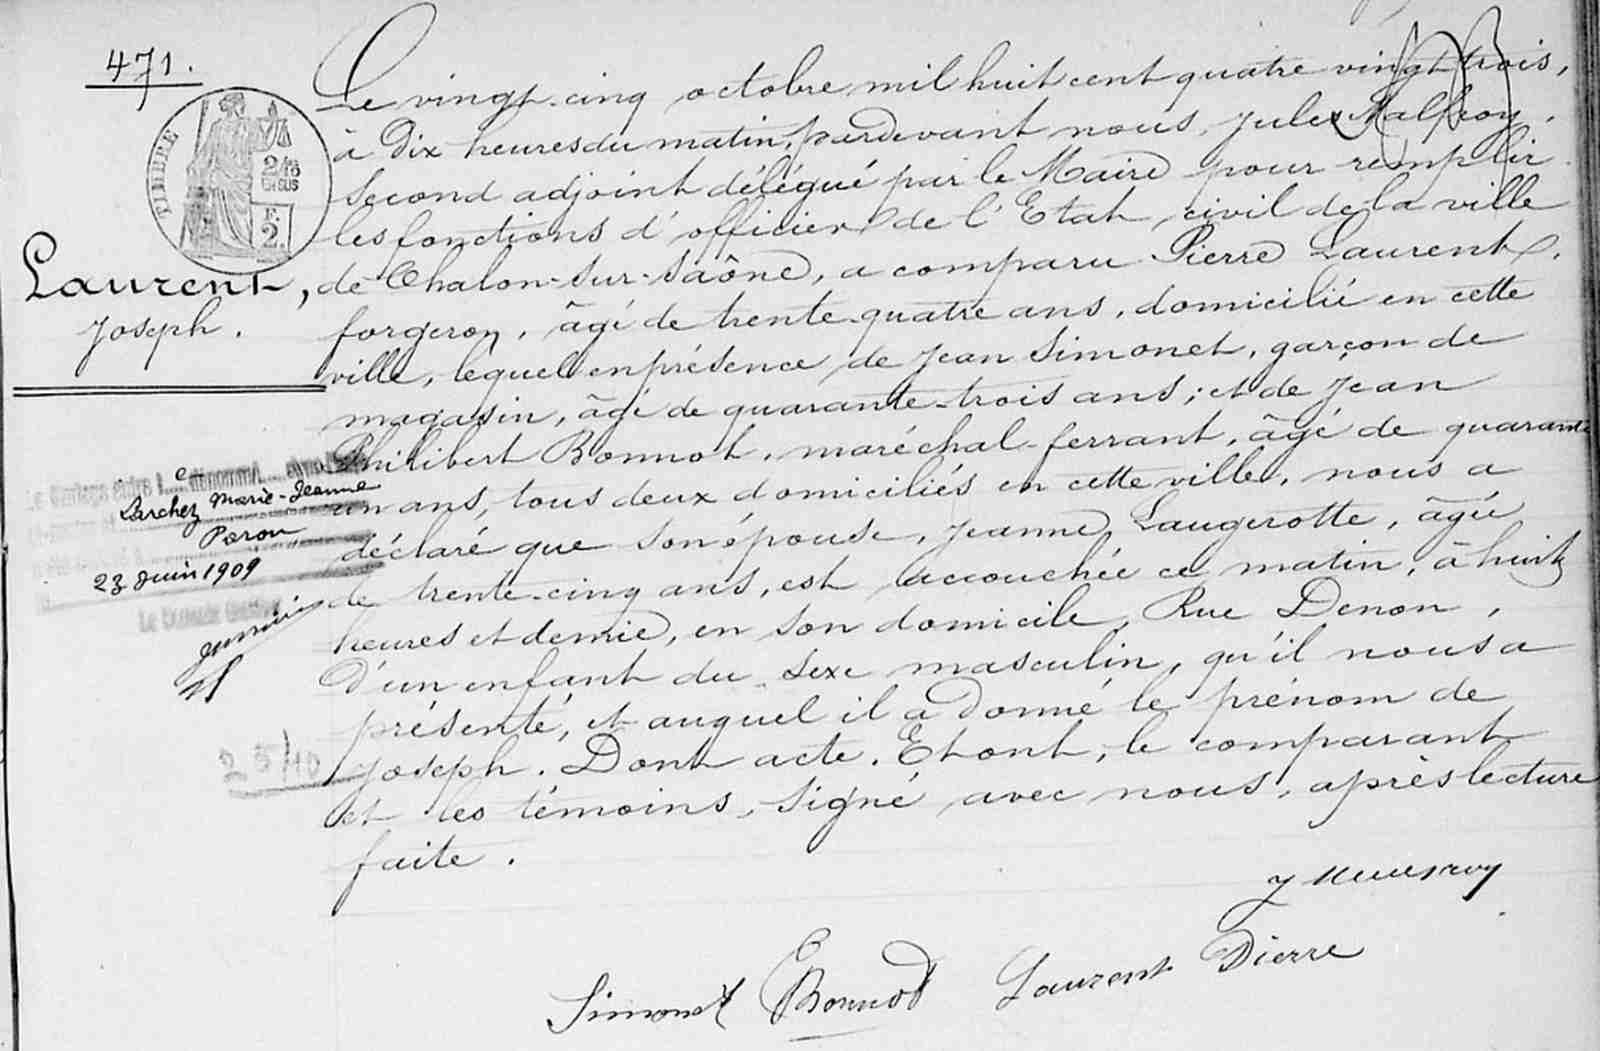 471.
TIMBRE
2/10
EN SUS
F.
2.
Laurent,
Joseph.
Le vingt-cinq octobre mil huit cent quatre vingt trois,
à Dix heures du matin, pardevant nous, Jules Malfroy,
second adjoint délégué par le Maire pour remplir
les fonctions d'officier de l'Etat civil de la ville
de Chalon-sur-Saône, a comparu Pierre Laurent,
forgeron, âgé de trente-quatre ans, domicilié en cette
ville, lequel en présence de Jean Simonet, garçon de
magasin, âgé de quarante-trois ans; et de Jean
Philibert Bonnot, maréchal-ferrant, âgé de quarante
un ans, tous deux domiciliés en cette ville, nous a
déclaré que son épouse, Jeanne Laugerotte, âgée
de trente-cinq ans, est accouchée ce matin, à huit
heures et demie, en son domicile, Rue Denon,
d'un enfant du sexe masculin, qu'il nous a
présenté, et auquel il a donné le prénom de
Joseph. Dont acte. Et ont, le comparant
et les témoins, signé avec nous, après lecture
faite.
Le Mariage entre l dénommé
Larchez Marie-Jeanne
23 Juin 1909
Le
25/10
Simonet Bonnot Laurent Pierre